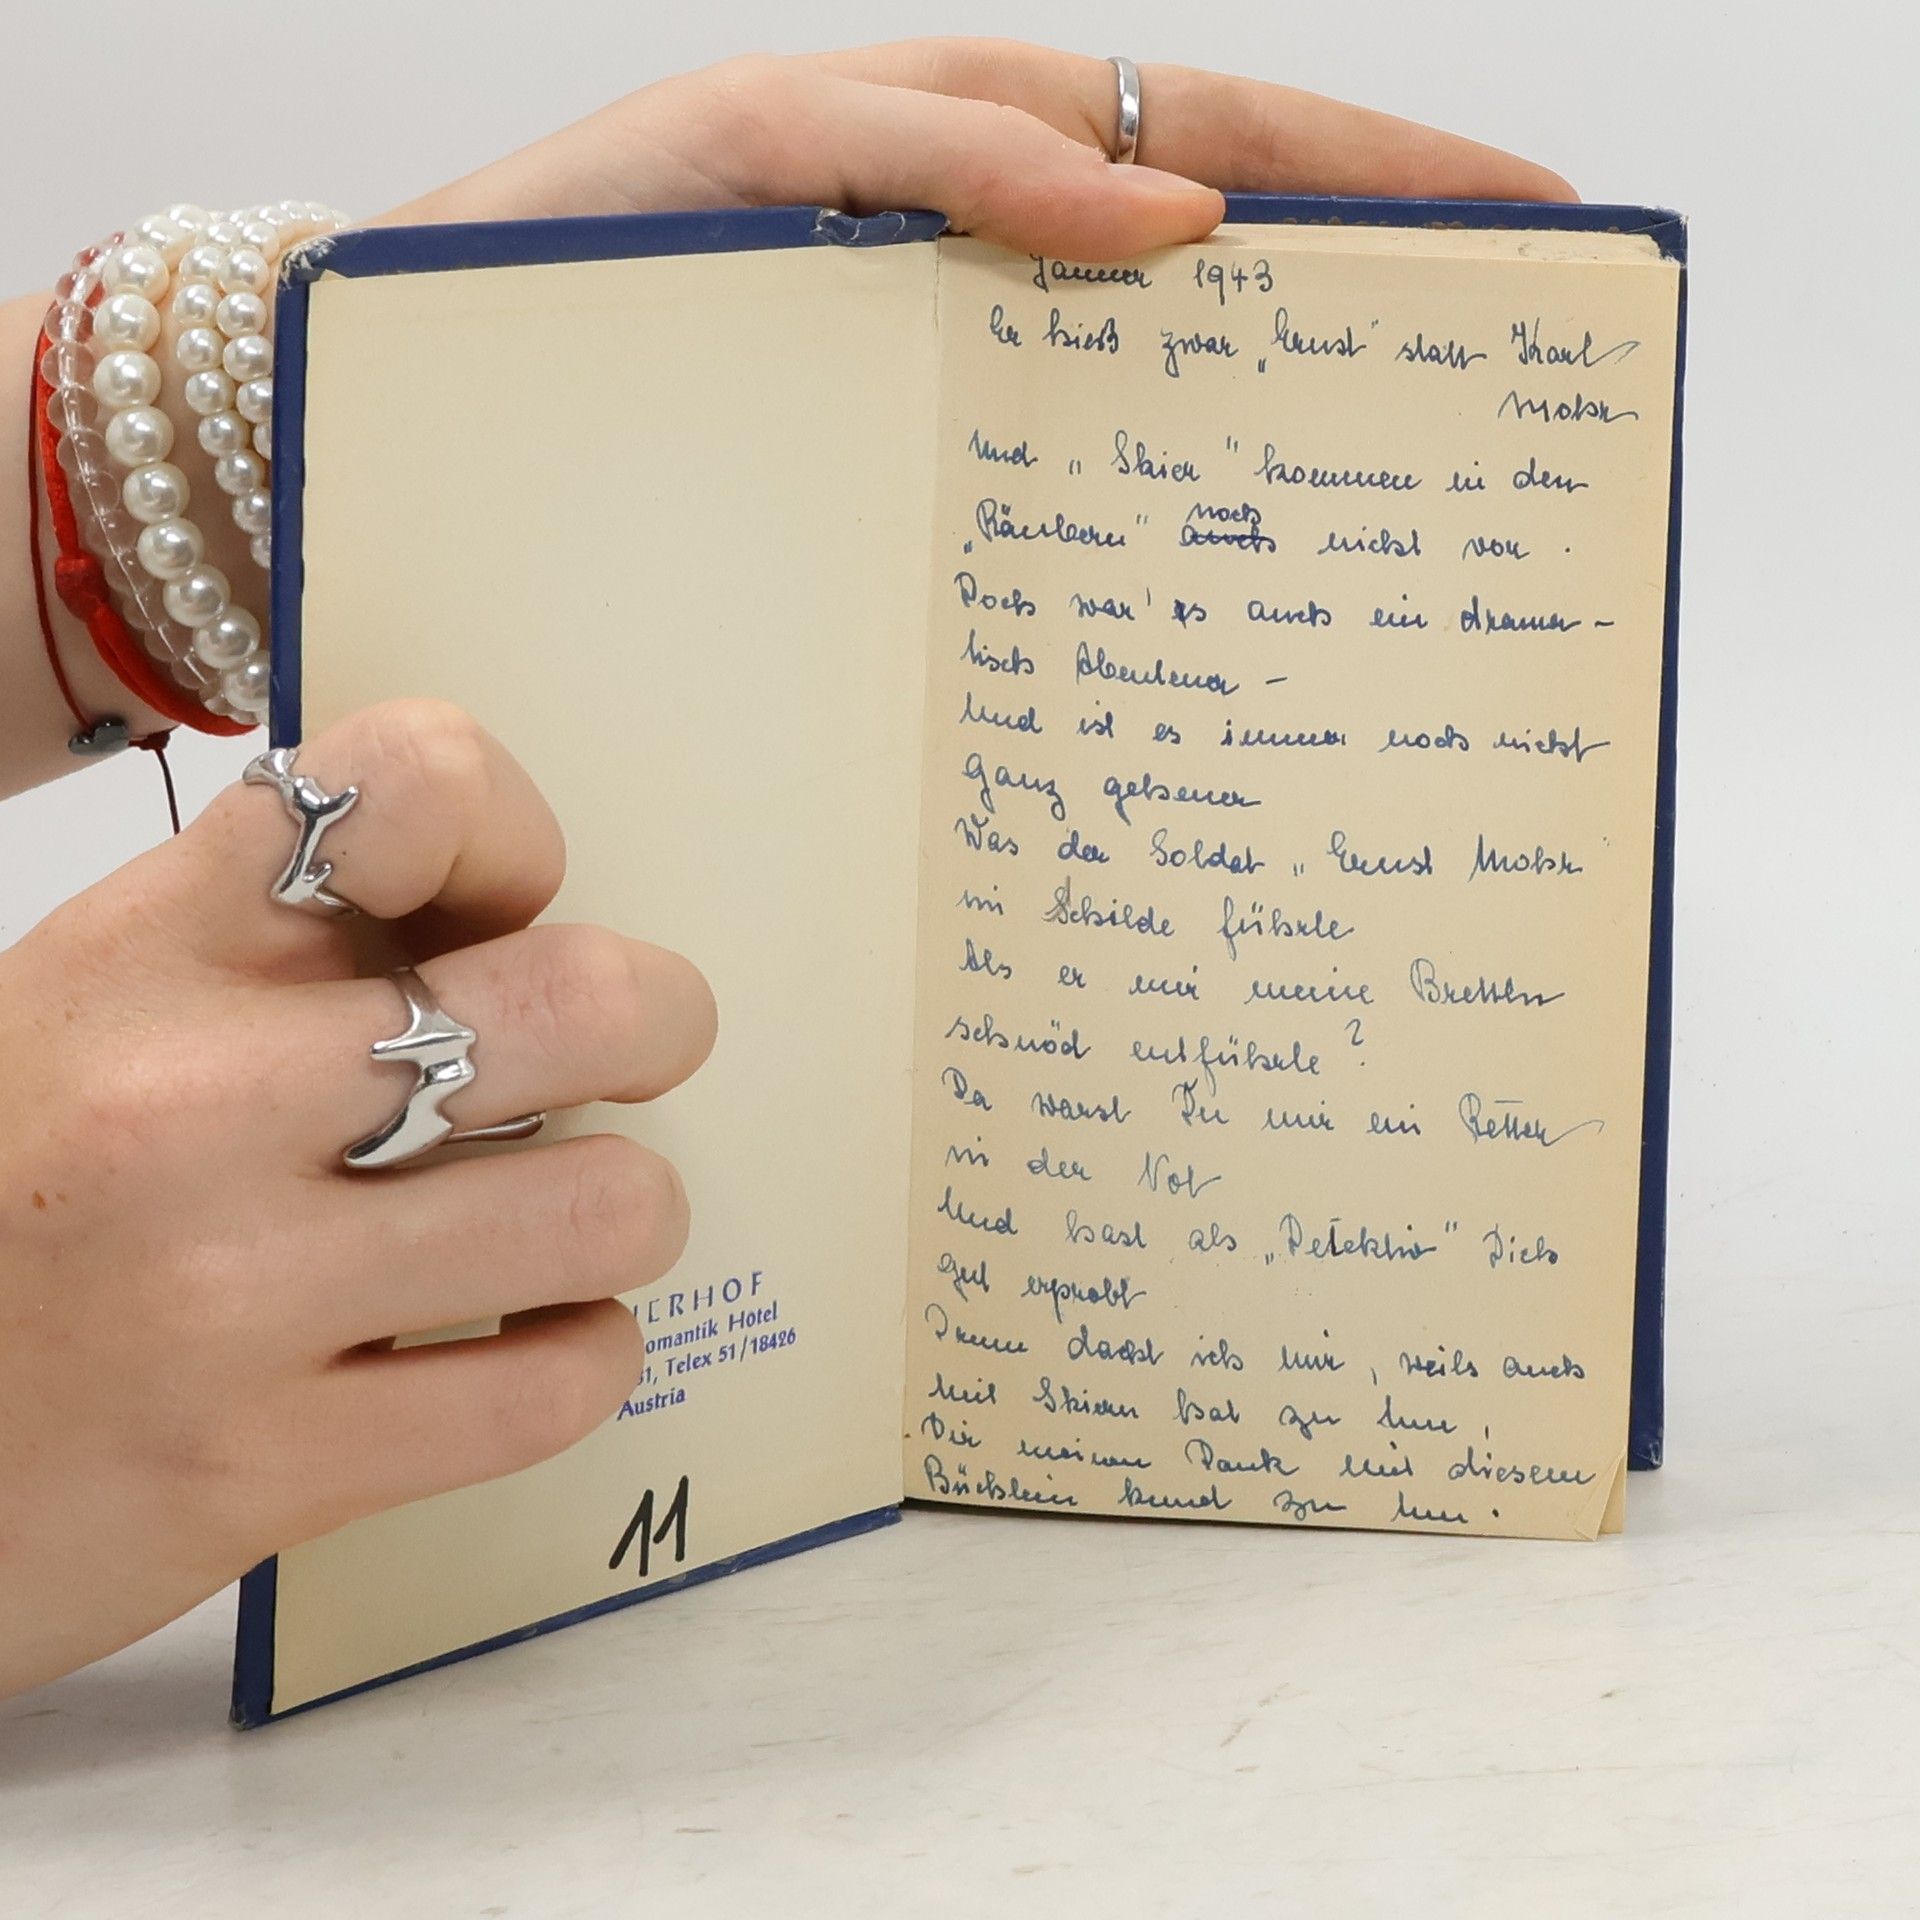 IERHOF
omantik Hotel
51, Telex 51/18426
Austria
11
Jänner 1943
Er hieß zwar „Ernst" statt Karl
Mohr
Und „Skier" kommen in den
„Räubern" auch noch nicht vor.
Doch war's auch ein drama-
tisch Abenteuer –
Und ist es immer noch nicht
Ganz geheuer
Was der Soldat „Ernst Mohr"
im Schilde führte
Als er mir meine Bretteln
schnöd entführte?
Da warst Du mir ein Retter
in der Not
Und hast als „Detektiv" Dich
gut erprobt
Drum dacht ich mir, weils auch
mit Skiern hat zu tun,
Dir meinen Dank mit diesem
Büchlein kund zu tun.